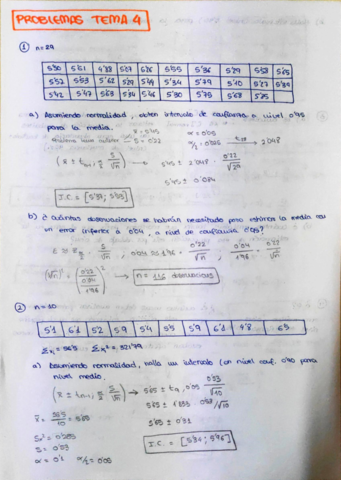 PROBLEMAS TEMA 4
① n=29
5'50 5'61 4'88 5'07 5'26 5'55 5'36 5'29 5'58 5'65
5'57 5'53 5'62 5'29 5'44 5'34 5'79 5'10 5'27 5'39
5'42 5'47 5'63 5'34 5'46 5'30 5'75 5'68 5'85
a) Asumiendo normalidad, intervalo de confianza a nivel 0'95
para la media.
(x̄ ± tₙ₋₁, S/√n) → 5'45 ± 2'048 · 0'22/√29
5'45 ± 0'084
I.C. = [5'37; 5'53]
b) ¿Cuántas observaciones se habrían necesitado para estimar la media con
un error inferior a 0'04, a nivel de confianza 0'95?
n = 116 observaciones
② n=10
5'1 6'1 5'2 5'9 5'4 5'5 5'9 6'1 4'8 6'5
Σxᵢ = 56'5 Σxᵢ² = 321'79
a) Asumiendo normalidad, halla un intervalo con nivel conf. 0'90 para
nivel medio.
(x̄ ± tₙ₋₁, S/√n) → 5'65 ± t₉, 0'05 0'53/√10
x̄ = 56'5/10 = 5'65
5'65 ± 1'833 0'53/√10
5'65 ± 0'31
S = 0'53
α = 0'1 α/2 = 0'05
I.C. = [5'34; 5'96]